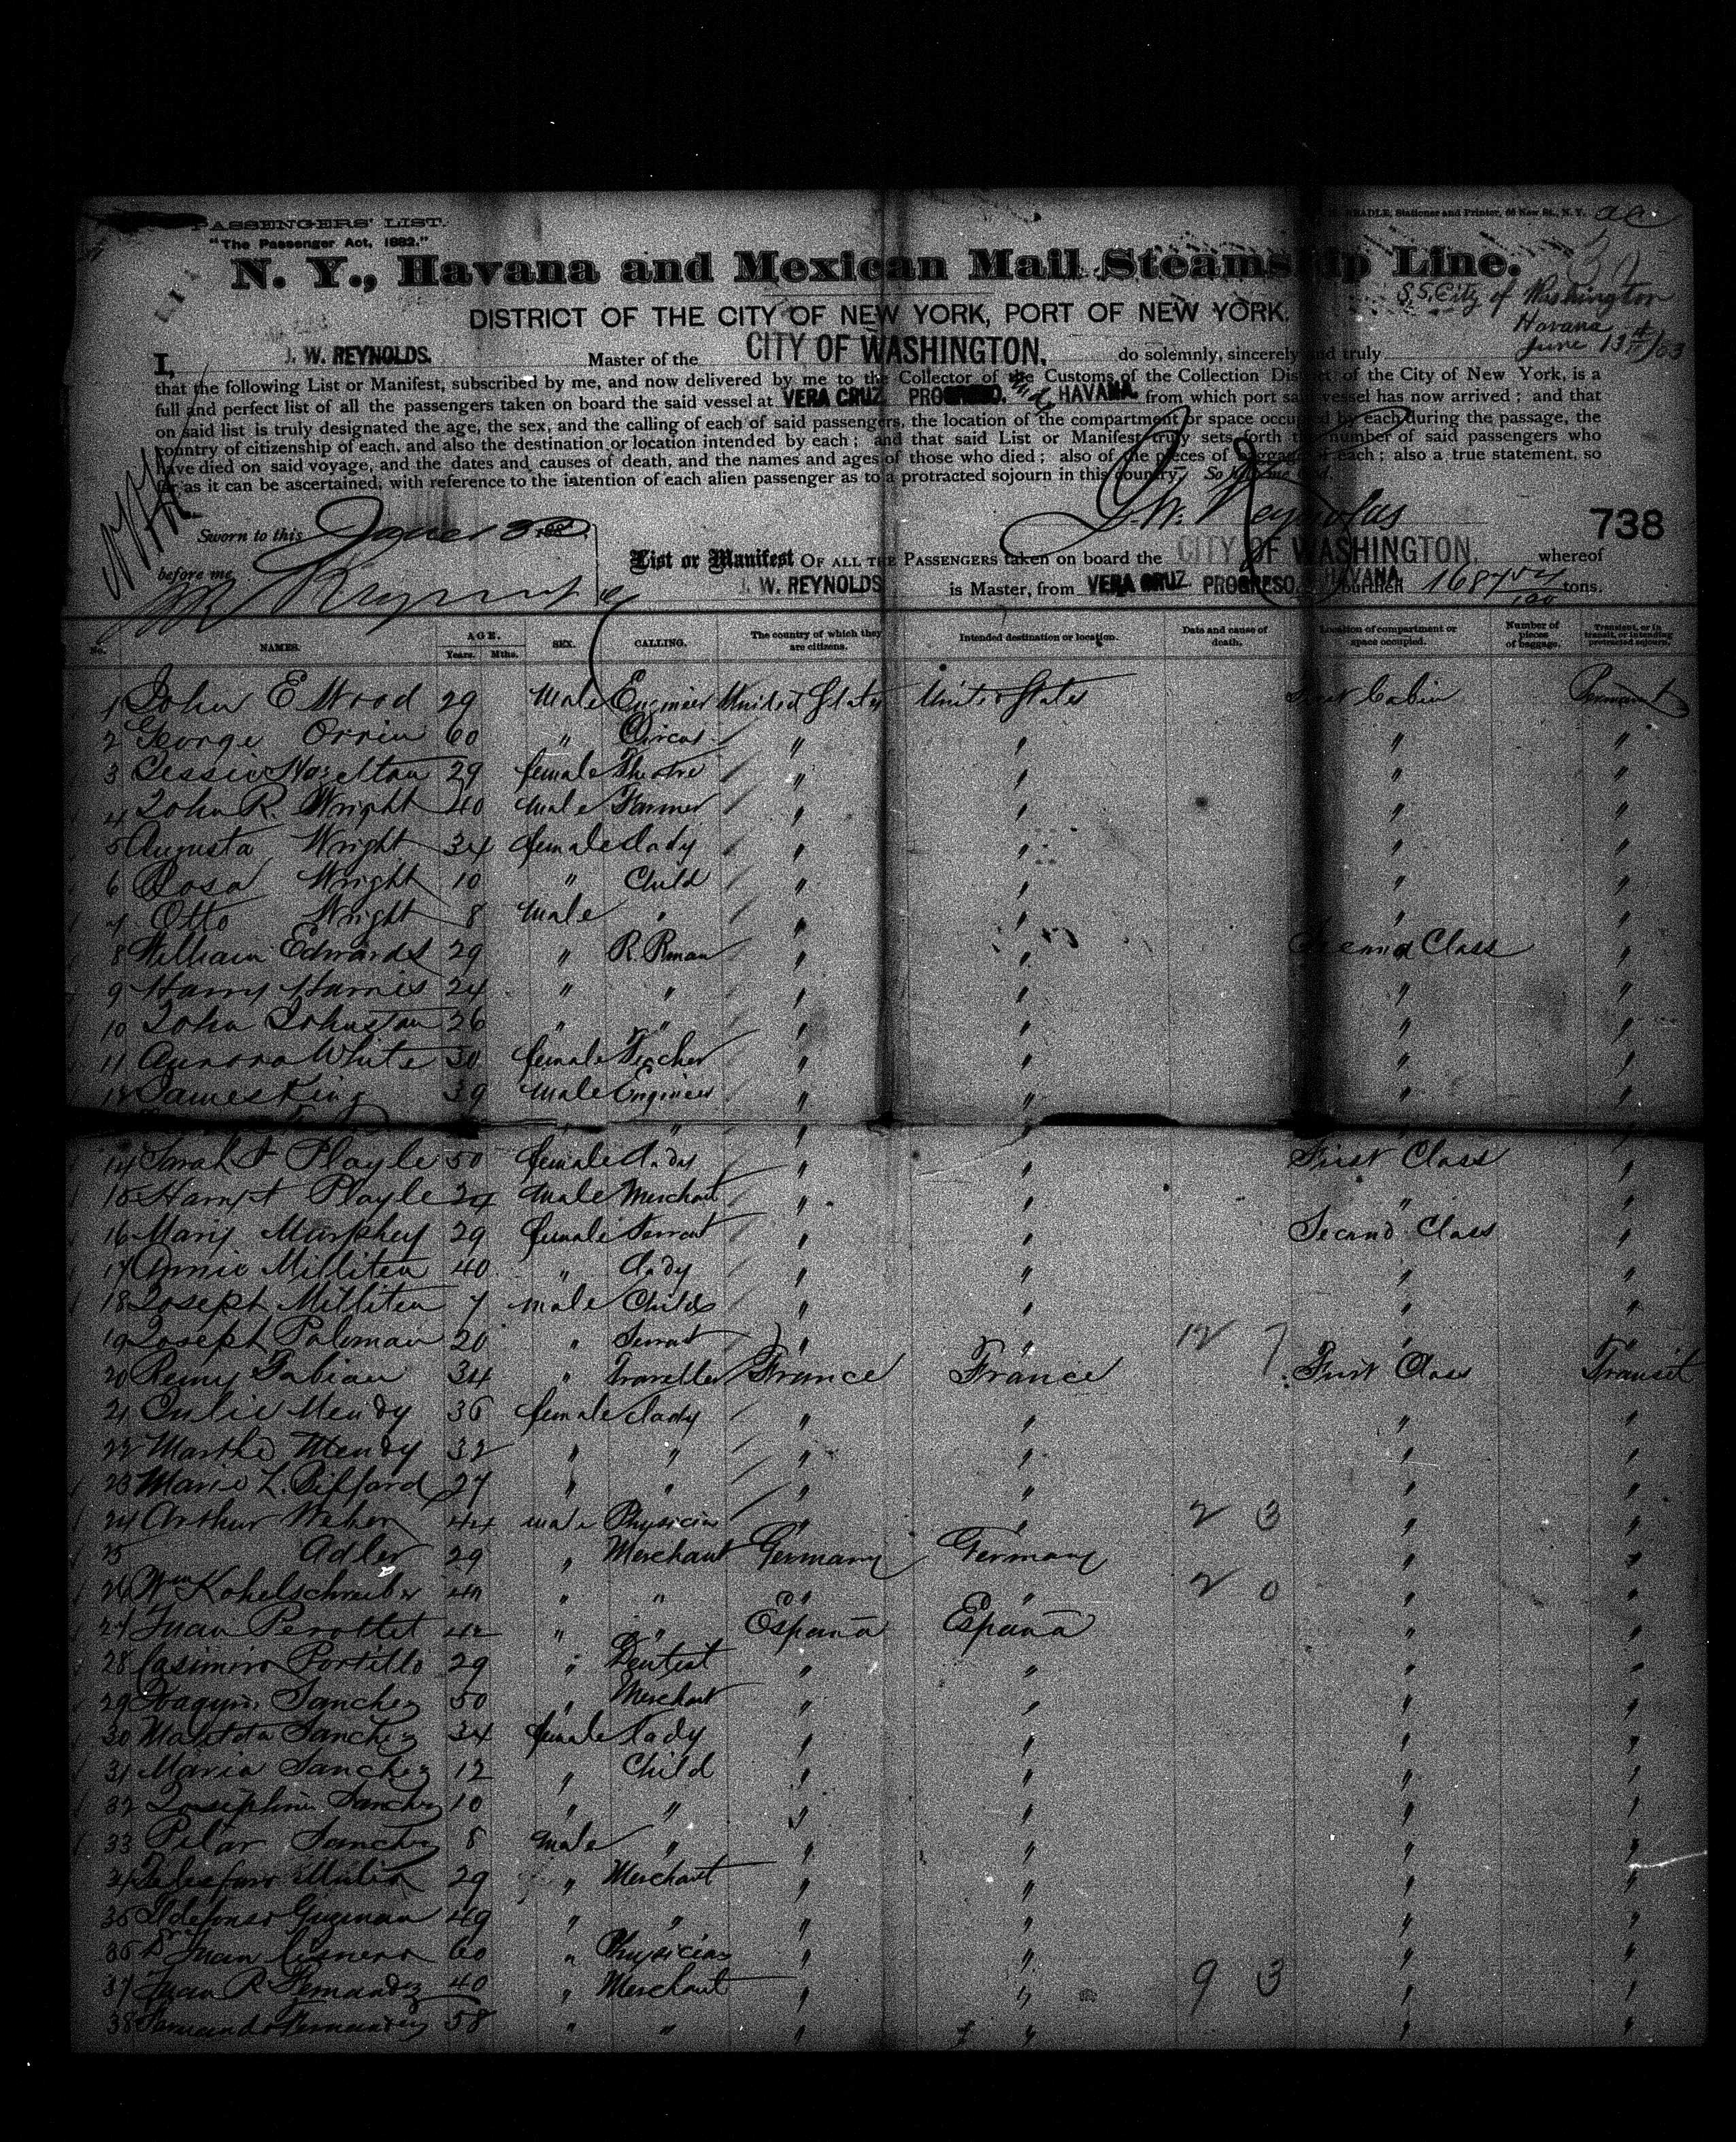 PASSENGERS' LIST.
"The Passenger Act, 1882."
Stationer and Printer, 66 New St., N. Y.
N. Y., Havana and Mexican Mail Steamship Line.
S.S. City of Washington
Havana
June 13
DISTRICT OF THE CITY OF NEW YORK, PORT OF NEW YORK.
I, J. W. REYNOLDS. Master of the CITY OF WASHINGTON, do solemnly, sincerely and truly
that the following List or Manifest, subscribed by me, and now delivered by me to the Collector of the Customs of the Collection District of the City of New York, is a
full and perfect list of all the passengers taken on board the said vessel at VERA CRUZ. PROGRESO. & HAVANA from which port said vessel has now arrived; and that
on said list is truly designated the age, the sex, and the calling of each of said passengers, the location of the compartment or space occupied by each during the passage, the
country of citizenship of each, and also the destination or location intended by each; and that said List or Manifest truly sets forth the number of said passengers who
have died on said voyage, and the dates and causes of death, and the names and ages of those who died; also of the pieces of baggage of each; also a true statement, so
far as it can be ascertained, with reference to the intention of each alien passenger as to a protracted sojourn in this country. So help me God.
J. W. Reynolds
738
Sworn to this June 13
before me
List or Manifest OF ALL THE PASSENGERS taken on board the CITY OF WASHINGTON. whereof
J. W. REYNOLDS is Master, from VERA CRUZ. PROGRESO. HAVANA. burthen 1684 tons.
No. NAMES. AGE. Years. Mths. SEX. CALLING. The country of which they are citizens. Intended destination or location. Date and cause of death. Location of compartment or space occupied. Number of pieces of baggage. Transient, or in transit, or intending protracted sojourn.
1 John E Wood 29 Male Engineer United States United States First Cabin
2 George Orrin 60 " Circus " " " "
3 Jessie Hazelton 29 female Theatre " " " "
4 John R. Wright 40 male Farmer " " " "
5 Augusta Wright 34 female Lady " " " "
6 Rosa Wright 10 " Child " " " "
7 Otto Wright 8 male " " " " "
8 William Edwards 29 " R. Rman " " Second Class "
9 Harry Harris 24 " " " " " "
10 John Johnston 26 " " " " " "
11 Aurora White 30 female Teacher " " " "
12 James King 39 male Engineer " " " "
14 Sarah Playle 50 female Lady " " First Class "
15 Harry Playle 24 male Merchant " " " "
16 Mary Murphey 29 female Servant " " Second Class "
17 Annie Milliten 40 " Lady " " " "
18 Joseph Milliten 7 male Child " " " "
19 Joseph Paloman 20 " Servant " " 12 7 " "
20 Remy Fabian 34 " Traveller France France First Class Transit
21 Julie Mendy 36 female Lady " " " "
22 Marthe Mendy 32 " " " " " "
23 Marie L. Bifford 27 " " " " " "
24 Arthur Weber 44 male Physician " " 2 3 " "
25 Adler 29 " Merchant Germany Germany " "
26 Wm Kohelschreiber " " " " 2 0 " "
27 Juan Perottet 42 " " España España " "
28 Casimiro Portillo 29 " Dentist " " " "
29 Sanchez 50 " Merchant " " " "
30 Sanchez 34 female Lady " " " "
31 Maria Sanchez 12 " Child " " " "
32 Josephine Sanchez 10 " " " " " "
33 Pilar Sanchez 8 male " " " " "
34 29 " Merchant " " " "
35 Ildefonso Guzman 49 " " " " " "
36 Dr Juan Cisneros 60 " Physician " " " "
37 Juan R Fernandez 40 " Merchant " " 9 3 " "
38 Fernando Fernandez 58 " " " " " "